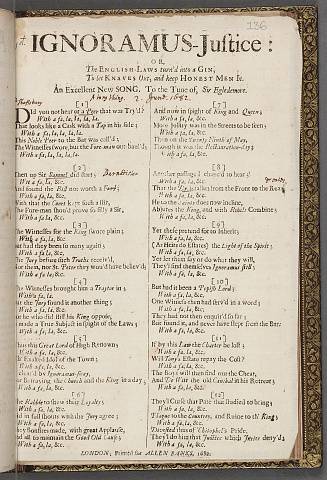 136
IGNORAMUS-Justice:
OR,
The ENGLISH-LAWS turn'd into a GIN,
To let KNAVES Out, and keep HONEST MEN In.
An Excellent New SONG. To the Tune of, Sir Egledemore.
2. June. 1682.
[1]
Did you not hear of a Peer that was Try'd?
With a fa, la, la, la, la.
That looks like a Cask with a Tap in his side;
With a fa, la, &c.
This Noble Peer to the Bar was call'd;
The Witnesses swore, but the Fore-man out-bawl'd;
With a fa, la, la, la, la.
[2]
Then up Sir Samuel did start;
With a fa, la, &c.
And found the Bill not worth a Fart;
With a fa, la, &c.
With that the Court kept such a stir,
The Fore-man should prove so silly a Sir,
With a fa, la, &c.
[3]
The Witnesses for the King swore plain;
With a fa, la, &c.
And had they been so many again;
With a fa, la, &c.
The Jury before such Traths receiv'd,
For them, nor St. Peter they wou'd have believ'd;
With a fa, la, &c.
[4]
The Witnesses brought him a Traytor in;
With a fa, la, &c.
But the Jury found it another thing;
With a fa, la, &c.
For he who did still his King oppose,
Is made a True Subject in spight of the Laws;
With a fa, la, &c.
[5]
Thus this Great Lord of High Renown;
With a fa, la, &c.
The Exalted Idol of the Town;
With a fa, la, &c.
Is clear'd by Ignoramus-sway,
For Betraying the Church and the King in a day;
With a fa, la, &c.
[6]
The Rabble to shew their Loyalty;
With a fa, la, &c.
And in full shouts with the Jury agree;
With a fa, la, &c.
They Bonfires made, with great Applause,
And all to maintain the Good Old Cause;
With a fa, la, &c.
[7]
And now in spight of King and Queen;
With a fa, la, &c.
More Jollity was in the Streets to be seen;
With a fa, la, &c.
Then on the Twenty Ninth of May,
Though it was the Restauration-day;
With a fa, la, &c.
[8]
With a fa, la, &c.
With a fa, la, &c.
Abjures the King, and with Rebels Combine;
With a fa, la, &c.
[9]
Yet these pretend for to Inherit;
With a fa, la, &c.
(As Heirs to Estates) the Light of the Spirit;
With a fa, la, &c.
Yet let them say or do what they will,
They'l find themselves Ignoramus still;
With a fa, la, &c.
[10]
But had it been a Popish Lord;
With a fa, la, &c.
One Witness then had serv'd in a word;
With a fa, la, &c.
They had not then enquir'd so far;
But found it, and never have stept from the Bar;
With a fa, la, &c.
[11]
If by this Law the Charter be lost;
With a fa, la, &c.
Will Tony's Estate repay the Cost?
With a fa, la, &c.
The Boys will then find out the Cheat,
And De Wit the old Cardinal in his Retreat;
With a fa, la, &c.
[12]
They'l Curse that Pate that studied to bring;
With a fa, la, &c.
Plague to the Countrey, and Ruine to th' King;
With a fa, la, &c.
With a fa, la, &c.
LONDON; Printed for ALLEN BANKS, 1682.